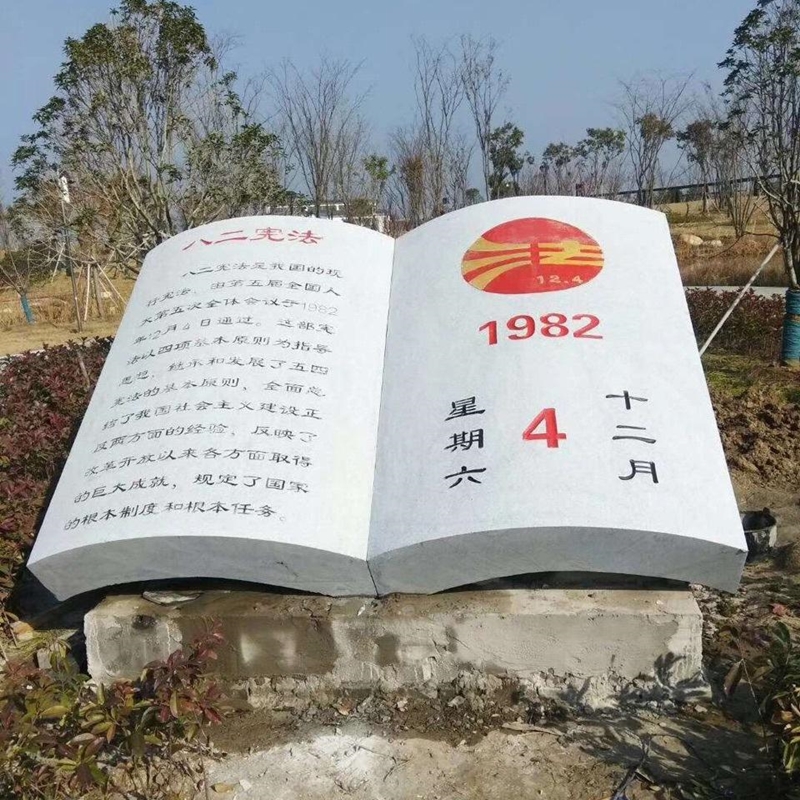 八二宪法
八二宪法是我国的现
行宪法，由第五届全国人
大第五次全体会议于1982
年12月4日通过。这部宪
法以四项基本原则为指导
思想，继承和发展了五四
宪法的基本原则，全面总
结了我国社会主义建设正
反两方面的经验，反映了
改革开放以来各方面取得
的巨大成就，规定了国家
的根本制度和根本任务。
法
12.4
1982
十二月
4
星期六